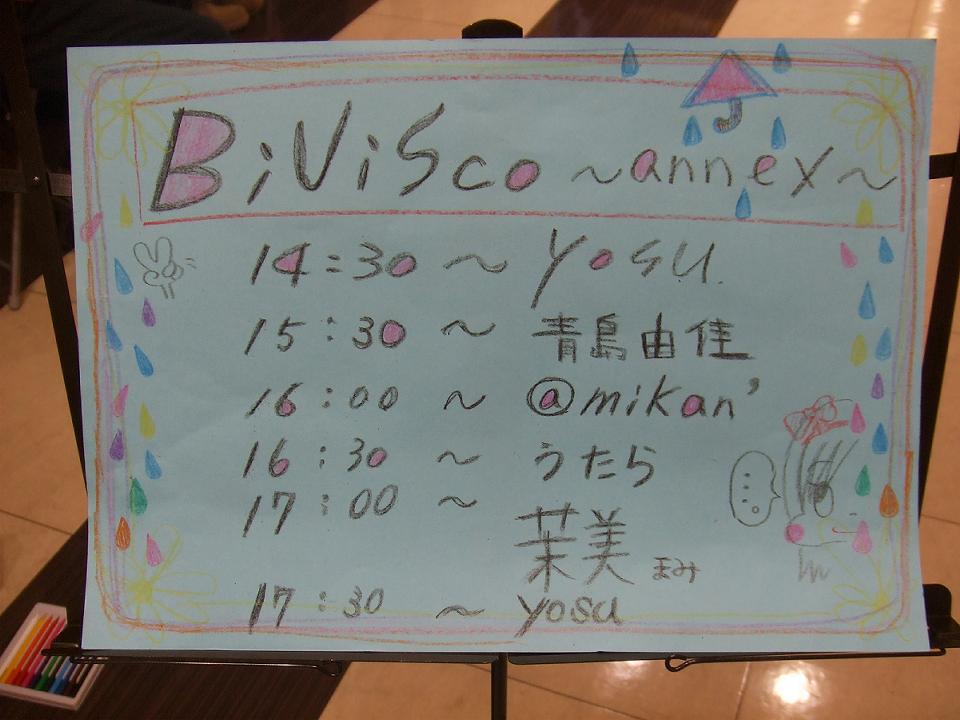 BiViSco ~annex~
14:30 ~ yosu
15:30 ~ 青島由佳
16:00 ~ @mikan'
16:30 ~ うたら
17:00 ~ 茉美 まみ
17:30 ~ yosu